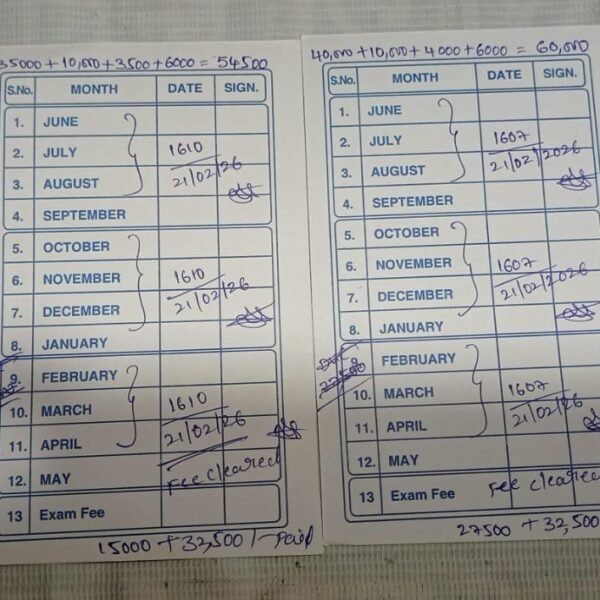 35000 + 10,000 + 3500 + 6000 = 54500
S.No. MONTH DATE SIGN.
1. JUNE
2. JULY 1610
3. AUGUST 21/02/26
4. SEPTEMBER
5. OCTOBER
6. NOVEMBER 1610
7. DECEMBER 21/02/26
8. JANUARY
9. FEBRUARY
10. MARCH 1610
11. APRIL 21/02/26
12. MAY Fee cleared
13 Exam Fee
15000 + 32,500/- Paid
40,000 + 10,000 + 4000 + 6000 = 60,000
S.No. MONTH DATE SIGN.
1. JUNE
2. JULY 1607
3. AUGUST 21/02/2026
4. SEPTEMBER
5. OCTOBER
6. NOVEMBER 1607
7. DECEMBER 21/02/2026
8. JANUARY
FEBRUARY
27,500
10. MARCH 1607
11. APRIL 21/02/26
12. MAY
13 Exam Fee Fee cleared
27500 + 32,500